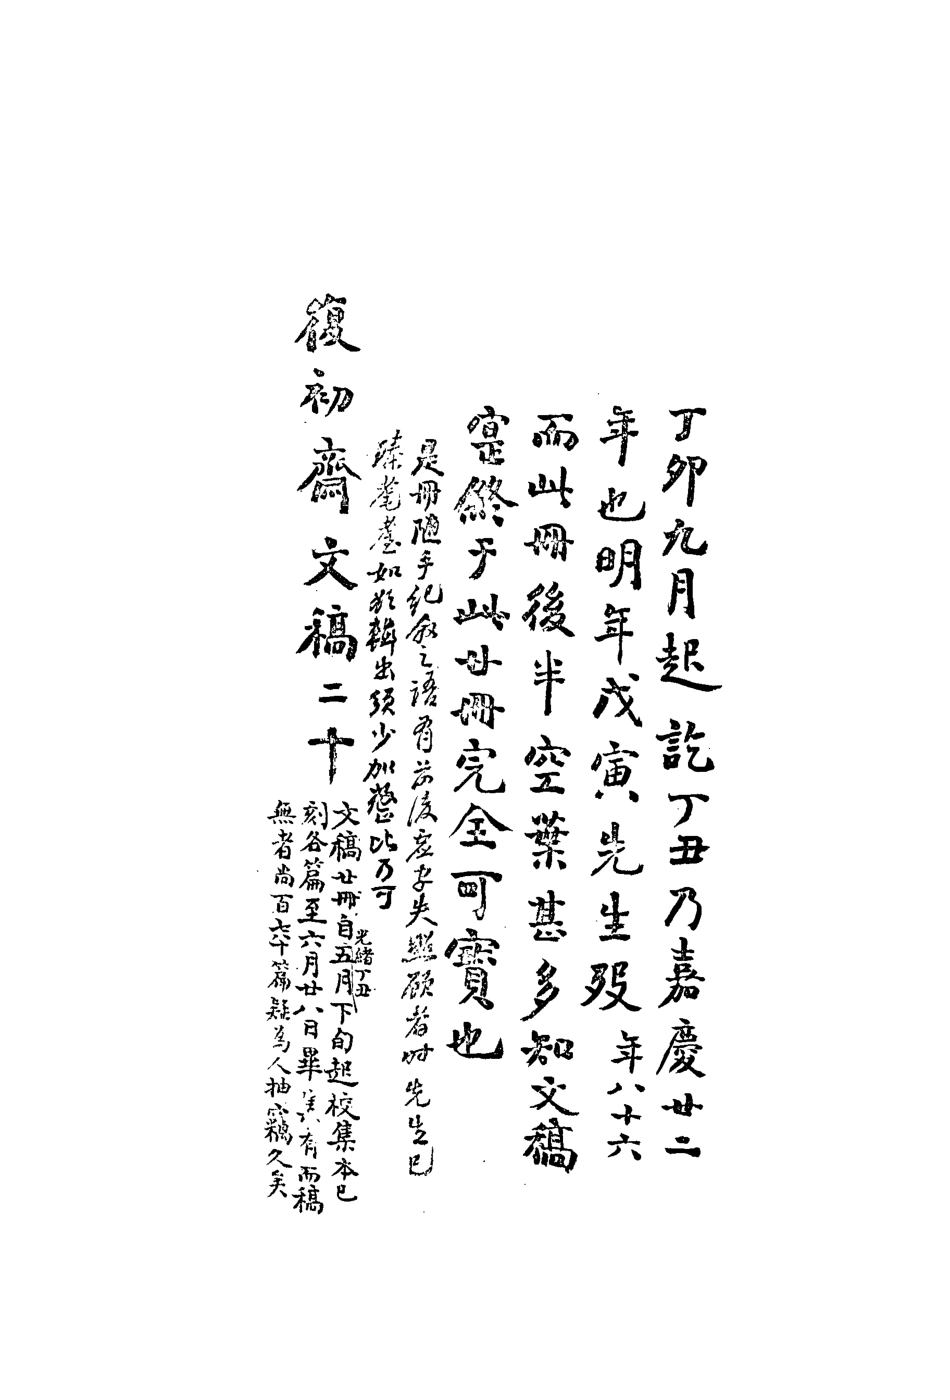 丁卯九月起訖丁丑乃嘉慶廿二
年也明年戊寅先生歿年八十六
而此冊後半空葉甚多知文稿
寔終于此廿冊完全可寶也
是冊隨手紀敘之語有前後應字失照顧者時先生已
臻耄耋如欲輯出須少加整比乃可
復初齋文稿二十
光緒丁丑
文稿廿冊自五月下旬起校集本已
刻各篇至六月廿八日畢集有而稿
無者尚百六十篇疑為人抽竊久矣